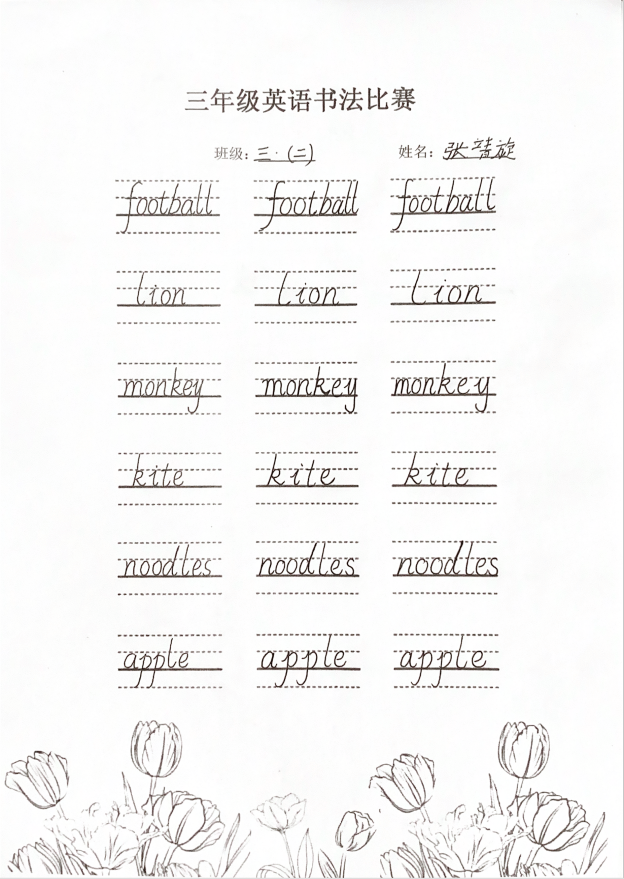 三年级英语书法比赛
班级：三·(二) 姓名：张 旋
football football football
lion lion lion
monkey monkey monkey
kite kite kite
noodles noodles noodles
apple apple apple